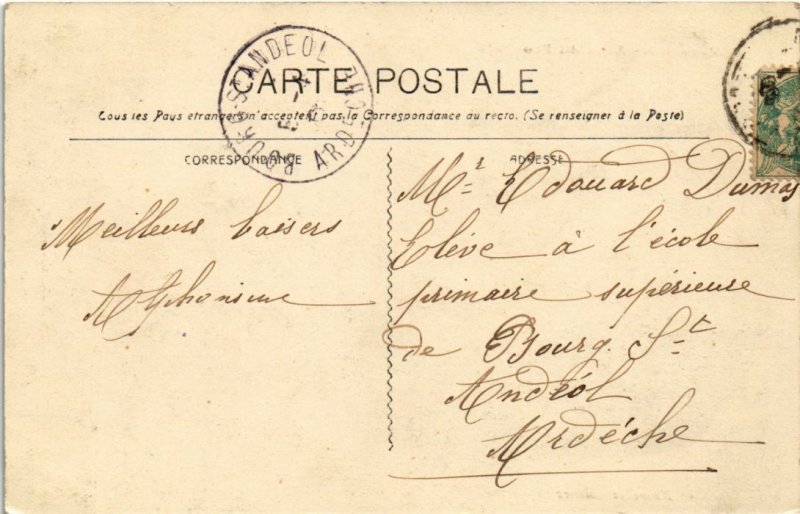 CARTE POSTALE
Tous les Pays étrangers n'acceptent pas la Correspondance au recto. (Se renseigner à la Poste)
CORRESPONDANCE
ADRESSE
BOURG-ST-ANDEOL
ARDECHE
Meilleurs baisers
Alphonsine
Mr Edouard Dumas
Elève à l'école
primaire supérieure
de Bourg. St
Andéol
Ardèche